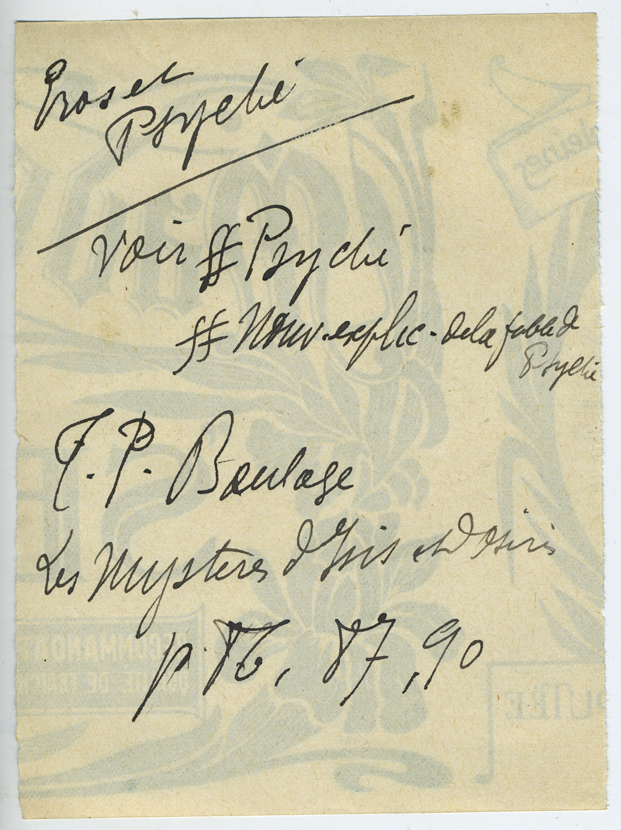 Eros et
Psyché
Voir ff Psyché
ff Nouv. explic. de la fable de
Psyché
T. P. Boulage
Les Mystères d'Isis et d'Osiris
p. 86, 87, 90